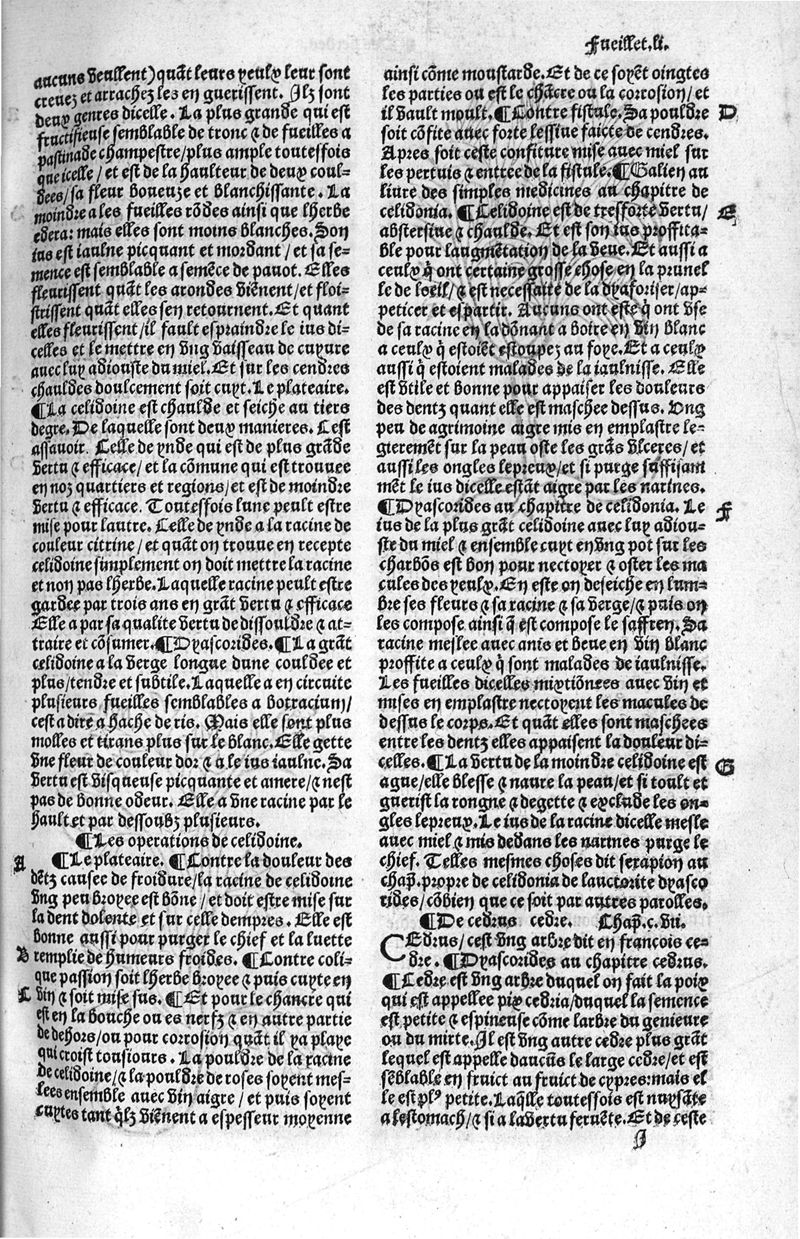 Fueillet.li.
aucuns veullent) quāt leurs yeulx leur sont
creuez et arrachez les en guerissent. Ilz sont
deux genres dicelle. La plus grande qui est
fructifieuse semblable de tronc ⁊ de fueilles a
pastinade champestre/plus ample touteffois
que icelle / et est de la haulteur de deux coul-
dees/sa fleur boueuze et blanchissante. La
moindre a les fueilles rōdes ainsi que lherbe
edera: mais elles sont moins blanches. Son
ius est iaulne picquant et mordant / et sa se-
mence est semblable a semēce de pauot. Elles
fleurissent quāt les arondes viēnent/et floi-
strissent quāt elles sen retournent. Et quant
elles fleurissent/il fault espraindre le ius di-
celles et le mettre en vng vaisseau de cuyure
auec luy adiouste du miel. Et sur les cendres
chauldes doulcement soit cuyt. Le plateaire.
¶La celidoine est chaulde et seiche au tiers
degre. De laquelle sont deux manieres. Cest
assauoir. Celle de ynde qui est de plus grāde
vertu ⁊ efficace/et la cōmune qui est trouuee
en noz quartiers et regions/et est de moindre
vertu ⁊ efficace. Toutesfois lune peult estre
mise pour lautre. Celle de ynde a la racine de
couleur citrine / et quāt on trouue en recepte
celidoine simplement on doit mettre la racine
et non pas lherbe. Laquelle racine peult estre
gardee par trois ans en grāt vertu ⁊ efficace
Elle a par sa qualite vertu de dissouldre ⁊ at-
traire et cōsumer. ¶Dyascorides. ¶La grāt
celidoine a la verge longue dune couldee et
plus/tendre et subtile. Laquelle a en circuite
plusieurs fueilles semblables a botraciun/
cest a dire a hache de ris. Mais elle sont plus
molles et tirans plus sur le blanc. Elle gette
vne fleur de couleur dor ⁊ a le ius iaulne. Sa
vertu est visqueuse picquante et amere/⁊ nest
pas de bonne odeur. Elle a vne racine par le
hault et par dessoubz plusieurs.
¶Les operations de celidoine.
A ¶Le plateaire. ¶Contre la douleur des
dētz causee de froidure/la racine de celidoine
vng peu broyee est bōne/et doit estre mise sur
la dent dolente et sur celle dempres. Elle est
bonne aussi pour purger le chief et la luette
B remplie de humeurs froides. ¶Contre coli-
que passion soit lherbe broyee ⁊ puis cuyte en
C vin ⁊ soit mise sus. ¶Et pour le chancre qui
est en la bouche ou es nerfz ⁊ en autre partie
de dehors/ou pour corrosion quāt il ya playe
qui croist tousiours. La pouldre de la racine
de celidoine/⁊ la pouldre de roses soyent mes-
lees ensemble auec vin aigre / et puis soyent
cuytes tant q̄lz viēnent a espesseur moyenne
ainsi cōme moustarde. Et de ce soyēt oingtes
les parties ou est le chācre ou la corrosion/et
il vault moult. ¶Contre fistule. Sa pouldre D
soit cōfite auec forte lessiue faicte de cendres.
Apres soit ceste confiture mise auec miel sur
les pertuis ⁊ entree de la fistule. ¶Galien au
liure des simples medicines au chapitre de
celidonia. ¶Celidoine est de tresforte vertu/ E
abstersiue ⁊ chaulde. Et est son ius proffita-
ble pour laugmētation de la veue. Et aussi a
ceulx q̄ ont certaine grosse chose en la prunel
le de loeil/⁊ est necessaite de la dyaforiser/ap-
peticer et espartir. Aucuns ont este q̄ ont vse
de sa racine en la dōnant a boire en vin blanc
a ceulx q̄ estoiēt estoupez au foye. Et a ceulx
aussi q̄ estoient malades de la iaulnisse. Elle
est vtile et bonne pour appaiser les douleurs
des dentz quant elle est maschee dessus. Vng
peu de agrimoine aigre mis en emplastre le-
gieremēt sur la peau oste les grās vlceres/et
aussi les ongles lepreux/et si purge suffisam
mēt le ius dicelle estāt aigre par les narines.
¶Dyascorides au chapitre de celidonia. Le F
ius de la plus grāt celidoine auec luy adiou-
ste du miel ⁊ ensemble cuyt en vng pot sur les
charbōs est bon pour nectoyer ⁊ oster les ma
cules des yeulx. En este on deseiche en lum-
bre ses fleurs ⁊ sa racine ⁊ sa verge/⁊ puis on
les compose ainsi q̄ est compose le saffren. Sa
racine meslee auec anis et beue en vin blanc
proffite a ceulx q̄ sont malades de iaulnisse.
Les fueilles dicelles mixtiōnees auec vin et
mises en emplastre nectoyent les macules de
dessus le corps. Et quāt elles sont maschees
entre les dentz elles appaisent la douleur di-
celles. ¶La vertu de la moindre celidoine est G
ague/elle blesse ⁊ naure la peau/et si toult et
guerist la rongne ⁊ degette ⁊ exclude les on-
gles lepreux. Le ius de la racine dicelle mesle
auec miel ⁊ mis dedans les narines purge le
chief. Telles mesmes choses dit serapion au
chap̄. propre de celidonia de lauctorite dyasco
rides/cōbien que ce soit par autres parolles.
¶De cedrus cedre. Chap̄. c. vii.
CEdrus/cest vng arbre dit en francois ce-
dre. ¶Dyascorides au chapitre cedrus.
¶Cedre est vng arbre duquel on fait la poix
qui est appellee pix cedria/duquel la semence
est petite ⁊ espineuse cōme larbre du genieure
ou du mirte. Il est vng autre cedre plus grāt
lequel est appelle daucūs le large cedre/et est
sēblable en fruict au fruict de cypres: mais el
le est plꝰ petite. Laq̄lle toutesfois est nuysāte
a lestomach/⁊ si a la vertu feruēte. Et de ceste
J